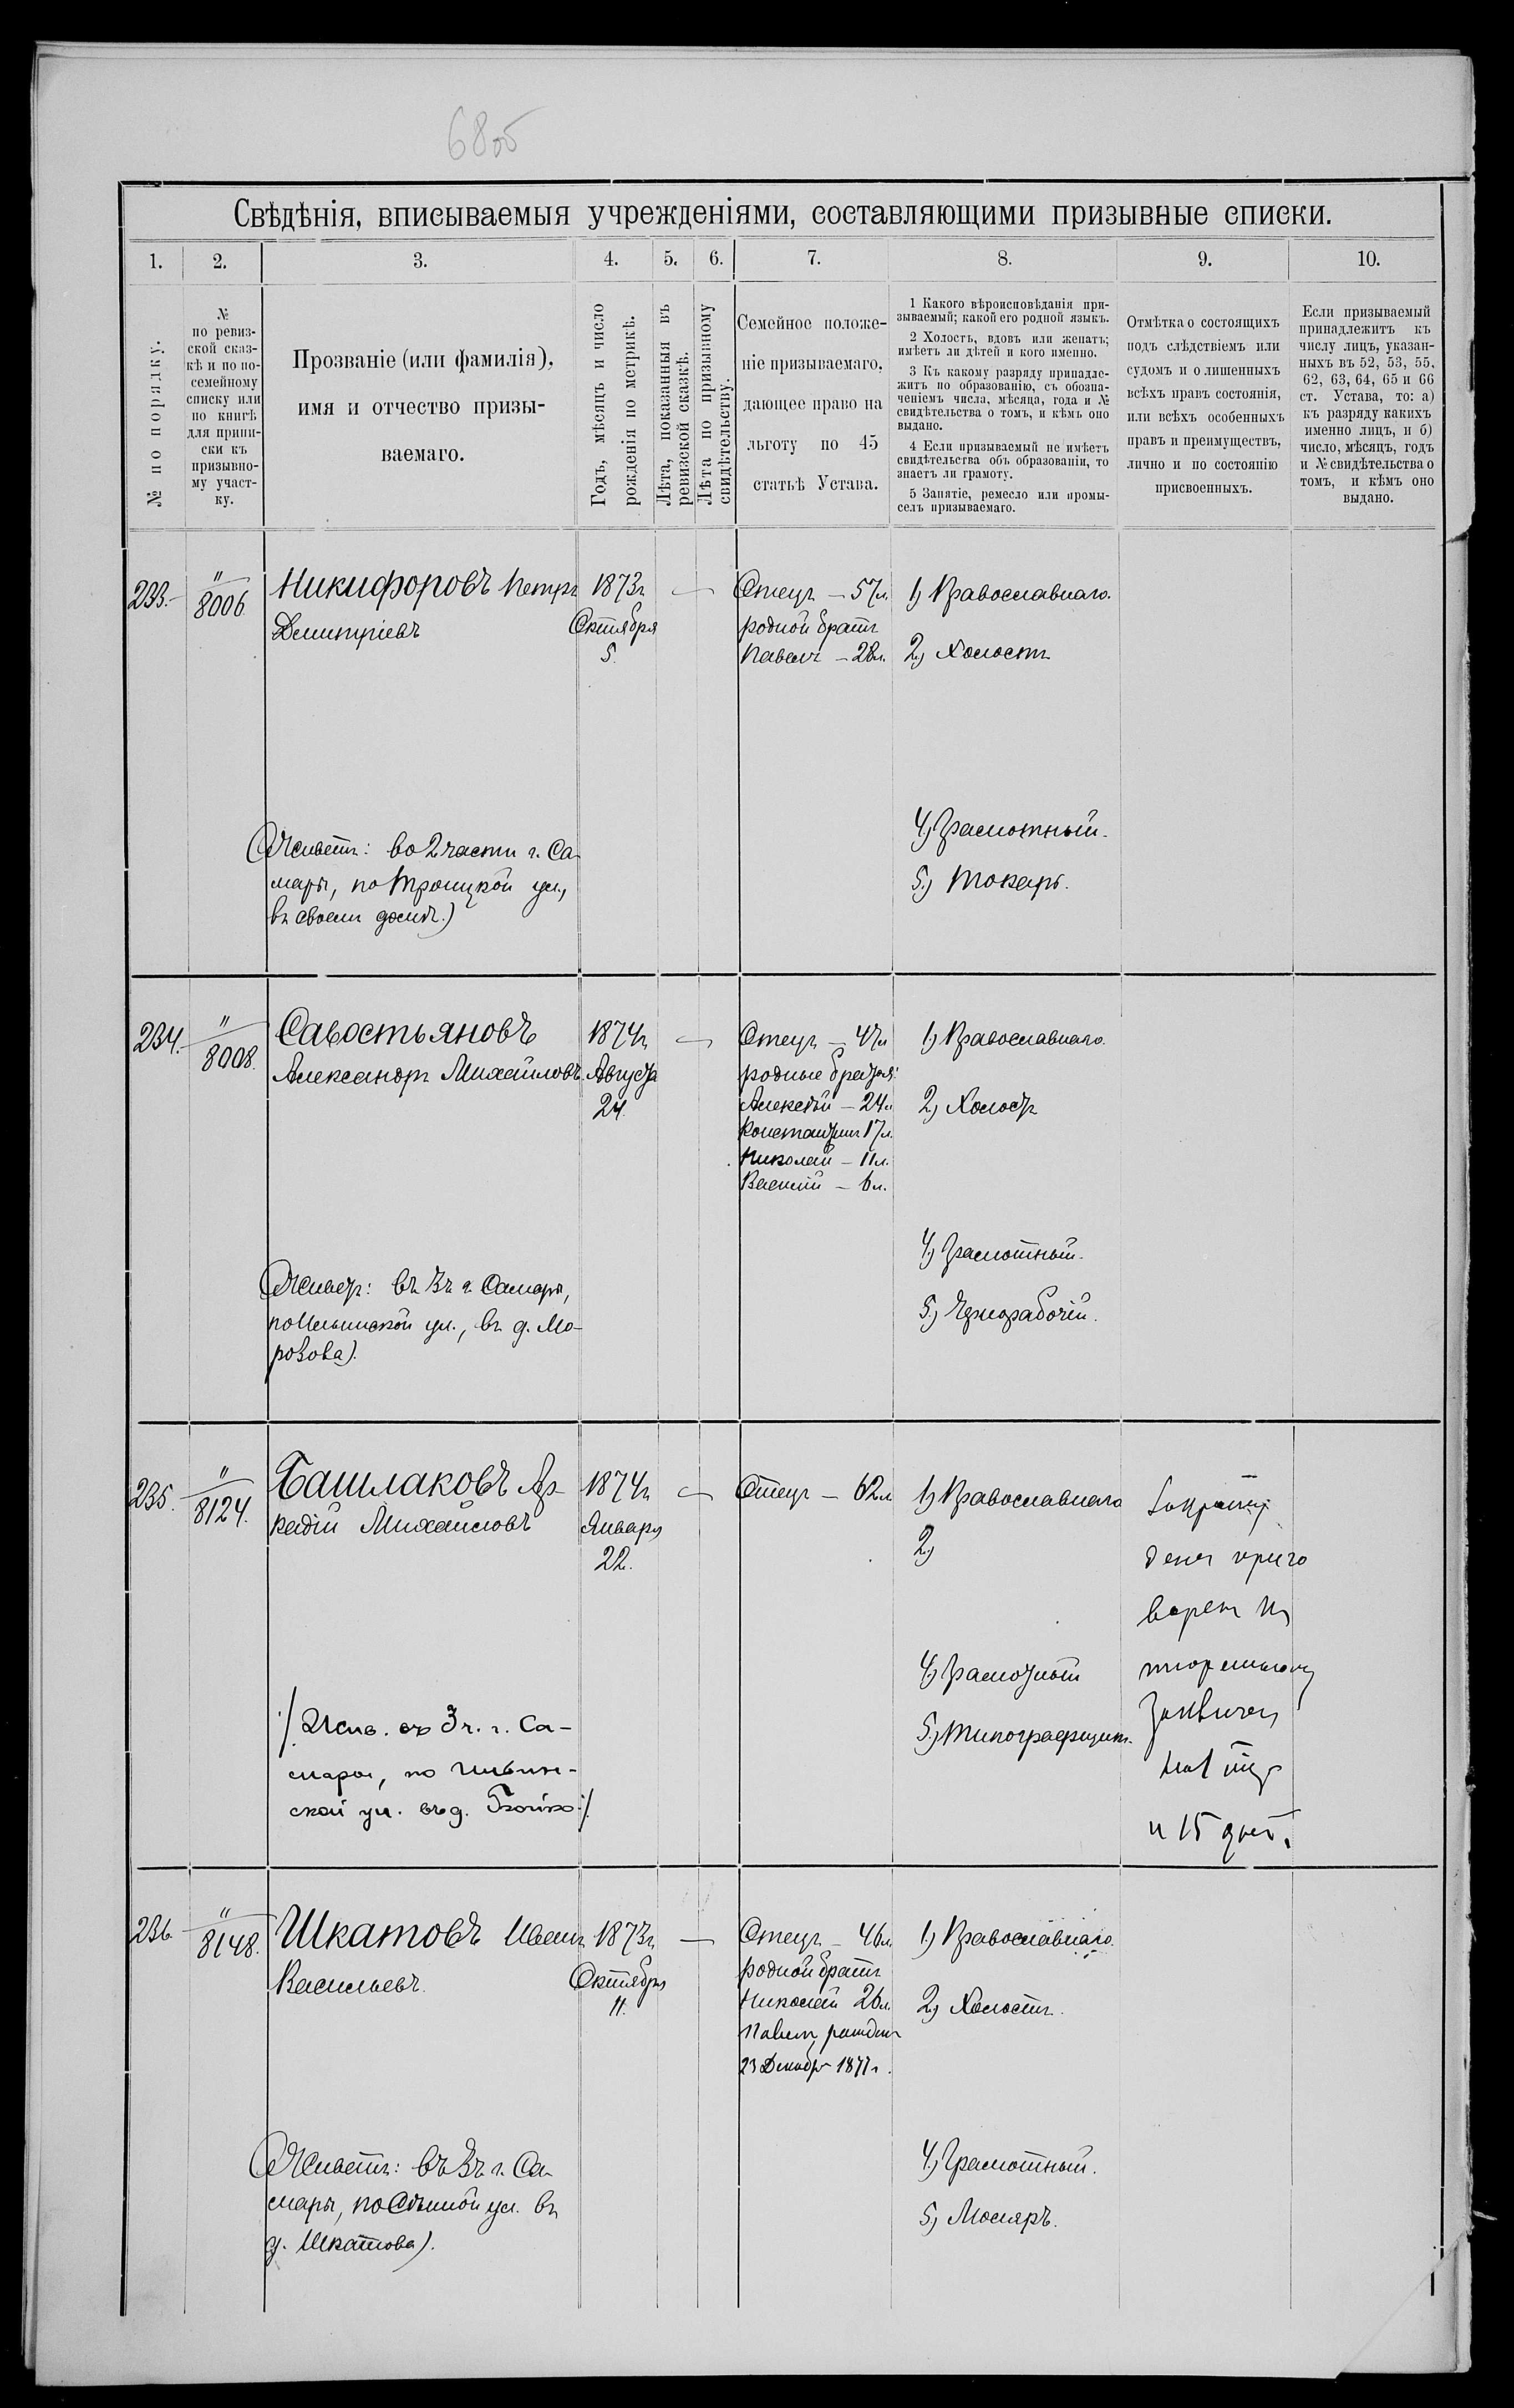 68об
Свѣдѣнія, вписываемыя учрежденіями, составляющими призывные списки.
1. 2. 3. 4. 5. 6. 7. 8. 9. 10.
№ по порядку.
№
по ревиз-
ской сказ-
кѣ и по по-
семейному
списку или
по книгѣ
для припи-
ски къ
призывно-
му участ-
ку.
Прозваніе (или фамилія),
имя и отчество призы-
ваемаго.
Годъ, мѣсяцъ и число
рожденія по метрикѣ.
Лѣта, показанныя въ
ревизской сказкѣ.
Лѣта по призывному
свидѣтельству.
Семейное положе-
ніе призываемаго,
дающее право на
льготу по 45
статьѣ Устава.
1 Какого вѣроисповѣданія при-
зываемый; какой его родной языкъ.
2 Холостъ, вдовъ или женатъ;
имѣетъ ли дѣтей и кого именно.
3 Къ какому разряду принадле-
житъ по образованію, съ обозна-
ченіемъ числа, мѣсяца, года и №
свидѣтельства о томъ, и кѣмъ оно
выдано.
4 Если призываемый не имѣетъ
свидѣтельства объ образованіи, то
знаетъ ли грамоту.
5 Занятіе, ремесло или промы-
селъ призываемаго.
Отмѣтка о состоящихъ
подъ слѣдствіемъ или
судомъ и о лишенныхъ
всѣхъ правъ состоянія,
или всѣхъ особенныхъ
правъ и преимуществъ,
лично и по состоянію
присвоенныхъ.
Если призываемый
принадлежитъ къ
числу лицъ, указан-
ныхъ въ 52, 53, 55,
62, 63, 64, 65 и 66
ст. Устава, то: а)
къ разряду какихъ
именно лицъ, и б)
число, мѣсяцъ, годъ
и № свидѣтельства о
томъ, и кѣмъ оно
выдано.
233.
"
8006
Никифоровъ Петръ
Дмитріевъ
(Живетъ: во 2 части г. Са-
мары, по Троицкой ул.,
въ своемъ домѣ.)
1873г
Октября
5.
—
Отецъ — 57л.
родной братъ
Павелъ — 28л.
1) Православнаго.
2) Холостъ
4) Грамотный.
5.) Токарь.
234.
"
8008.
Савостьяновъ
Александръ Михайловъ
(Живетъ: въ 3ч г. Самары,
по Ильинской ул., въ д. Мо-
розова).
1874г
Августа
24.
—
Отецъ — 47л
родные братья:
Алексѣй — 24л
Константинъ 17л.
Николай — 11л.
Василій — 6л.
1) Православнаго.
2) Холостъ
4) Грамотный.
5) Чернорабочій.
235.
"
8124.
Башлаковъ Ар-
кадій Михайловъ
/Жив. въ 3ч. г. Са-
мары, по Ильин-
ской ул. въ д. Бойко./
1874г
Января
22.
—
Отецъ — 62л
1) Православнаго
2)
4) Грамотный
5) Типографщикъ.
За кражу
денег приго
ворен къ
тюремному
на 1 год
и 15 дней.
236
"
8148.
Шкатовъ Иванъ
Васильевъ.
(Живетъ: въ 3ч г. Са-
мары, по Сѣнной ул. въ
д. Шкатова).
1873г
Октября
11.
—
Отецъ — 46л.
родной братъ
Николай 26л.
Павелъ, рожден
23 Декабр 1877г.
1) Православнаго.
2) Холостъ.
4) Грамотный.
5) Маляръ.